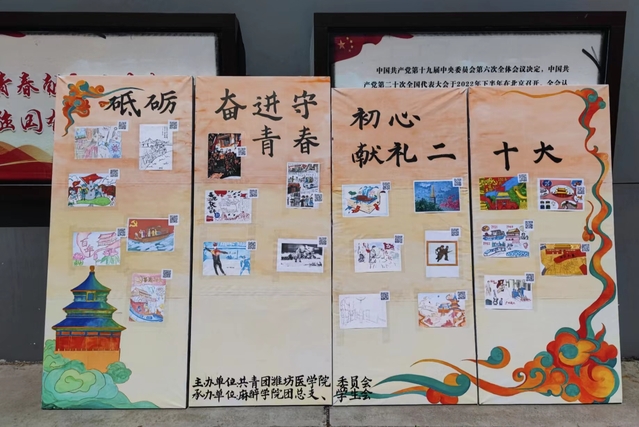 青春献
强国
中国共产党第十九届中央委员会第六次全体会议决定，中国共
产党第二十次全国代表大会于2022年下半年在北京召开。全会认
砥砺 奋进守 初心
青春 献礼二 十大
主办单位共青团潍坊医学院 委员会
承办单位麻醉学院团总支、学生会